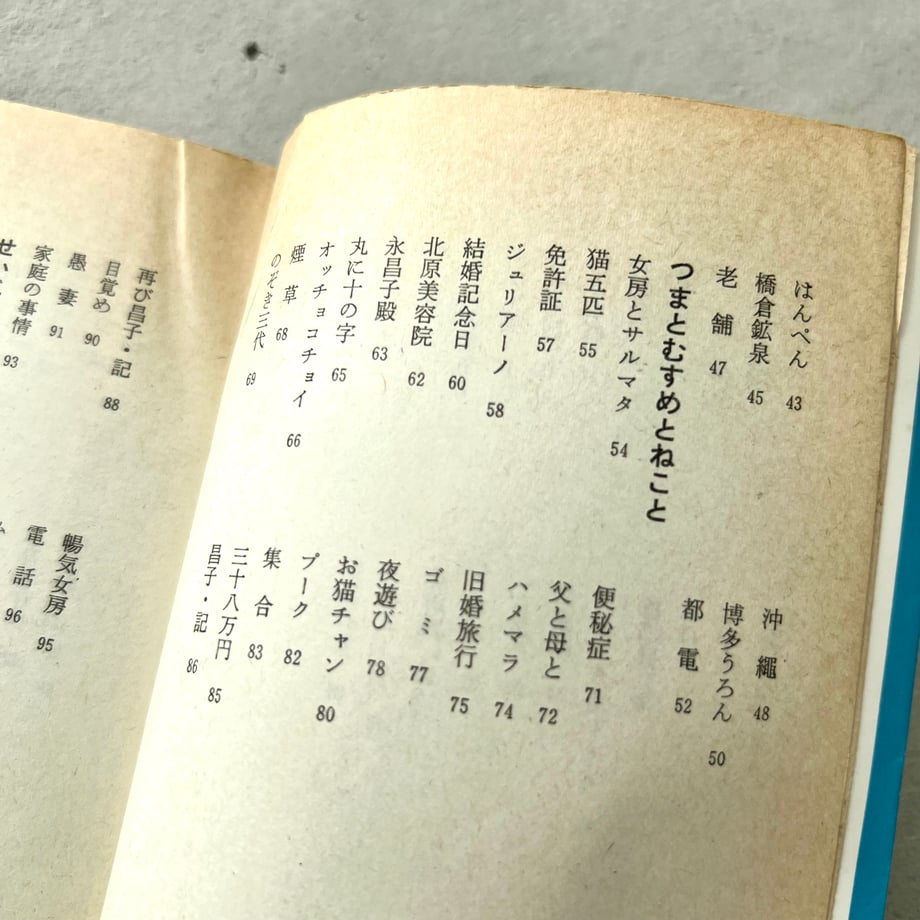 はんぺん 43
橋倉鉱泉 45
老舗 47
沖縄 48
博多うろん 50
都電 52
つまとむすめとねこと
女房とサルマタ 54
猫五匹 55
免許証 57
ジュリアーノ 58
結婚記念日 60
北原美容院 62
永昌子殿 63
丸に十の字 65
オッチョコチョイ 66
煙草 68
のぞき三代 69
便秘症 71
父と母と 72
ハメマラ 74
旧婚旅行 75
ゴミ 77
夜遊び 78
お猫チャン 80
プーク 82
集合 83
三十八万円 85
昌子・記 86
再び昌子・記 88
目覚め 90
愚妻 91
家庭の事情 93
暢気女房 95
電話 96